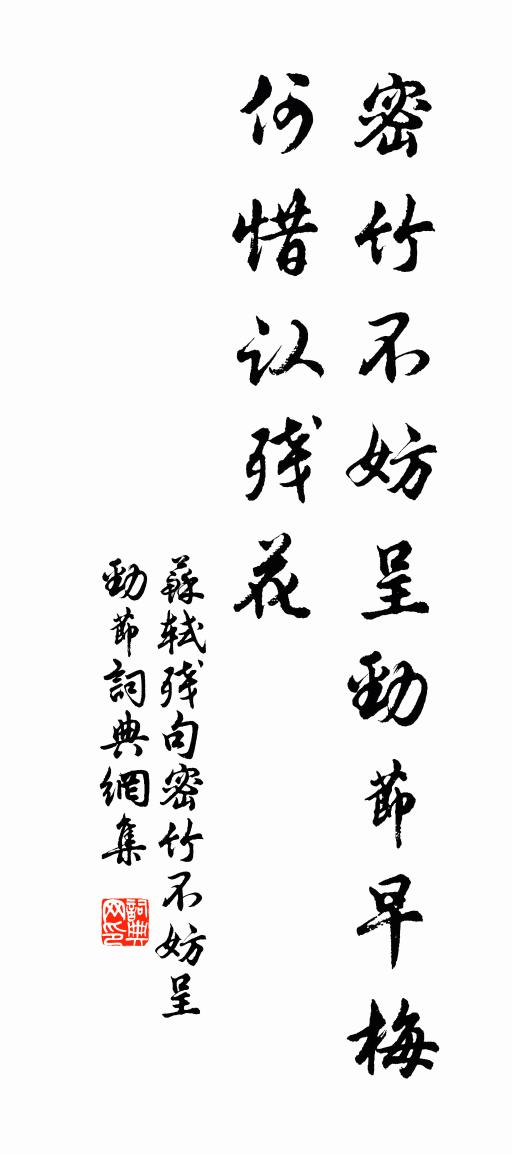 密竹不妨呈勁節早梅
何惜认残花
蘇軾残句密竹不妨呈
勁節詞典網集
詞典
网印